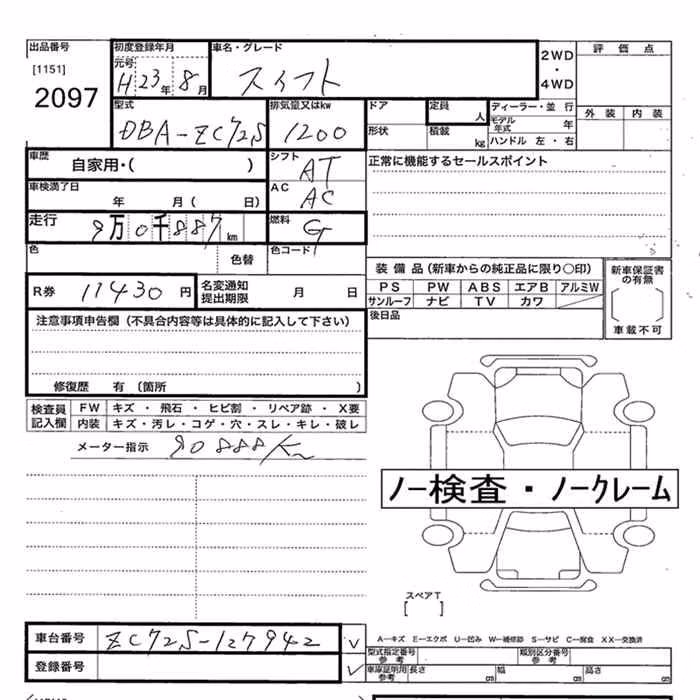 出品番号
[1151]
2097
初度登録年月
元号
H23年8月
車名・グレード
スイフト
2WD
・
4WD
評価点
外装 内装
型式
DBA-ZC72S
排気量又はkw
1200
ドア
形状
定員 人
積載 kg
ディーラー・並行
モデル年式 年
ハンドル 左・右
車歴
自家用・( )
シフト
AT
正常に機能するセールスポイント
車検満了日
年 月( 日)
AC
AC
走行
9万0千887km
燃料
G
色
色替
色コード
装備品(新車からの純正品に限り○印)
PS PW ABS エアB アルミW
サンルーフ ナビ TV カワ
新車保証書
の有無
[ ]
車載不可
R券 11430円
名変通知
提出期限
月 日
後日品
注意事項申告欄(不具合内容等は具体的に記入して下さい)
修復歴 有 (箇所 )
検査員
記入欄
FW キズ・飛石・ヒビ割・リペア跡・X要
内装 キズ・汚レ・コゲ・穴・スレ・キレ・破レ
メーター指示 90888Km
ノー検査・ノークレーム
スペアT
[ ]
車台番号 ZC72S-127942
登録番号
A…キズ E…エクボ U…凹み W…補修跡 S…サビ C…腐食 XX…交換済
型式指定番号
参考
類別区分番号
参考
車庫証明用
参考
長さ cm
幅 cm
高さ cm